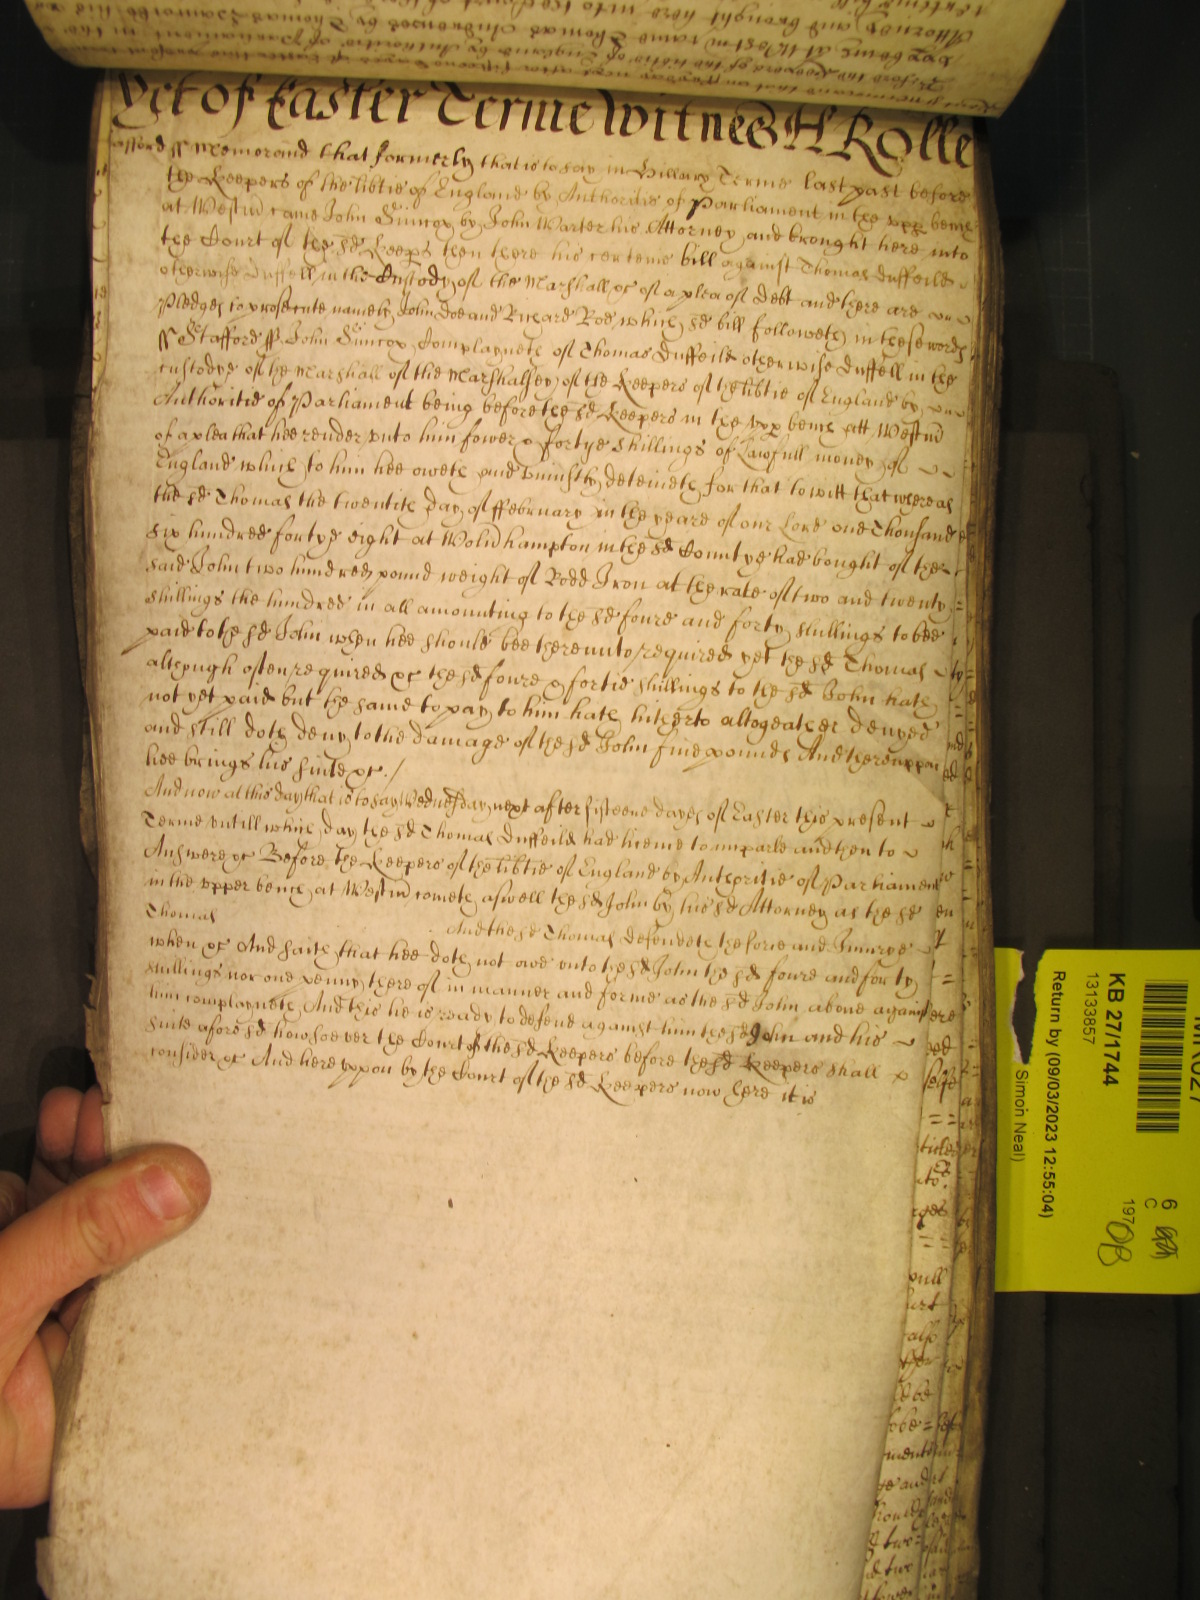 Yet of Easter Terme Witnes H Rolle
afford ss Memorand that formerly that is to say in Hillary Terme last past before
the Keepers of the libtie of England by Authoritie of Parliament in the upp bench
at Westm came John Simcox by John Warter his Attorney and brought here into
the Court of the sd Keeps then there his certeine bill against Thomas Duffeild
otherwise Duffell in the Custody of the Marshall &c of a plea of Debt and there are
Pledges to prosecute namely John Doe and Richard Roe which sd bill followeth in these words
ss Stafford ss John Simcox Complayneth of Thomas Duffeild otherwise Duffell in the
custodye of the Marshall of the Marshalsey of the Keepers of the libtie of England by
Authoritie of Parliament being before the sd Keepers in the upp bench att Westm
of a plea that hee render unto him fower & fortye shillings of Lawfull money of
England which to him hee oweth and uniustly deteineth for that to witt that whereas
the sd Thomas the twentith day of ffebruary in the yeare of our Lord one Thousand
six hundred fortye eight at Wolvhampton in the sd Countye had bought of the
said John two hundred pound weight of Rodd Iron at the rate of two and twenty
shillings the hundred in all amounting to the sd foure and forty shillings to bee
paid to the sd John when hee should bee thereunto required yet the sd Thomas
although often required &c the sd foure & fortie shillings to the sd John hath
not yet paid but the same to pay to him hath hitherto altogeather denyed
and still doth deny to the damage of the sd John five pounds And thereuppon
hee brings his suite &c./
And now at this day that is to say Wednesday next after fifteene dayes of Easter this present
Terme untill which day the sd Thomas Duffeild had licence to imparle and then to
Answere &c Before the Keepers of the libtie of England by Authoritie of Parliament
in the upper bench at Westm cometh aswell the sd John by his sd Attorney as the sd
Thomas
And the sd Thomas defendeth the force and Iniurye
when &c And saith that hee doth not owe unto the sd John the sd foure and forty
shillings nor one penny thereof in manner and forme as the sd John above against
him complayneth And this he is ready to defend against him the sd John and his
suite afors'd howsoever the Court of the sd Keepers before the sd Keepers shall
consider &c And hereuppon by the Court of the sd Keepers now here it is
KB 27/1744
13133857
Return by (09/03/2023 12:55:04)
Simon Neal)
6
C
197